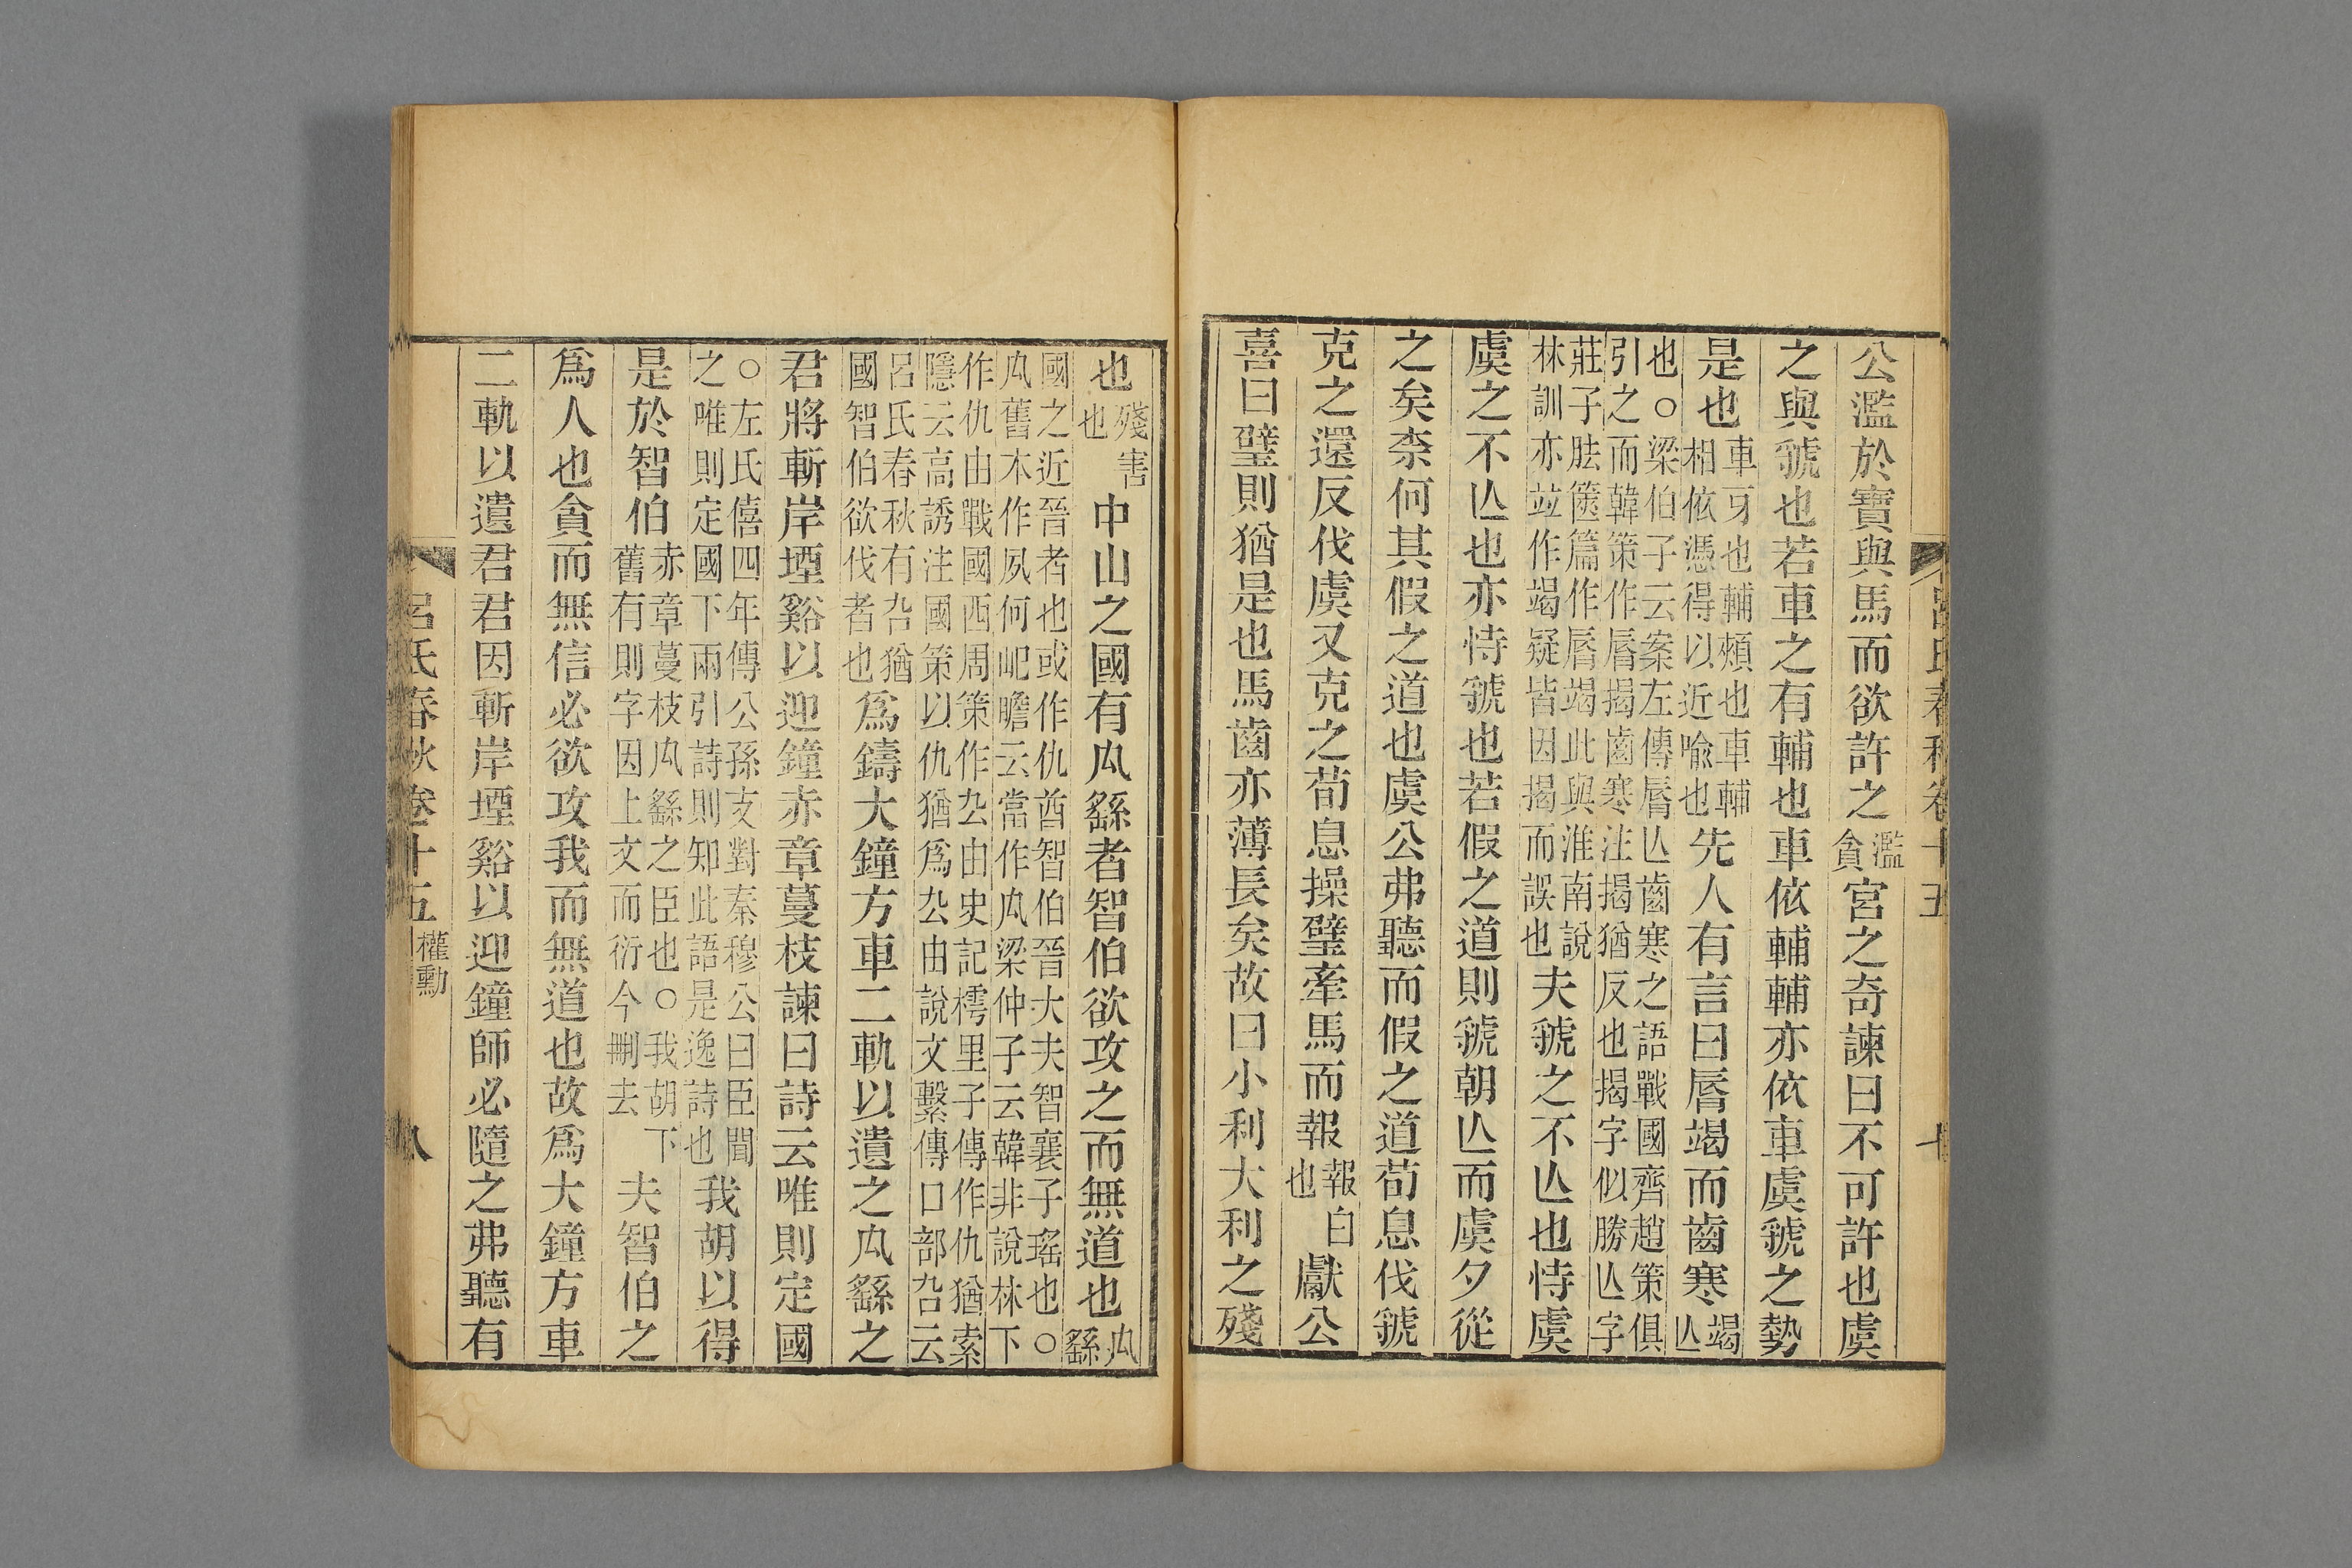 公濫於寶與馬而欲許之濫貪宮之奇諫曰不可許也虞
之與虢也若車之有輔也車依輔輔亦依車虞虢之勢
是也車牙也輔頰也車輔相依憑得以近喻也先人有言曰脣竭而齒寒竭亾
也○梁伯子云案左傳脣亾齒寒之語戰國齊趙策俱引之而韓策作脣揭齒寒注揭猶反也揭字似勝亾字
莊子胠篋篇作脣竭此與淮南說林訓亦竝作竭疑皆因揭而誤也夫虢之不亾也恃虞
虞之不亾也亦恃虢也若假之道則虢朝亾而虞夕從
之矣柰何其假之道也虞公弗聽而假之道荀息伐虢
克之還反伐虞又克之荀息操璧牽馬而報報白也獻公
喜曰璧則猶是也馬齒亦薄長矣故曰小利大利之殘
呂氏春秋卷十五
也殘害也中山之國有㼌繇者智伯欲攻之而無道也㼌繇
國之近晉者也或作仇酋智伯晉大夫智襄子瑤也○㼌舊本作夙何屺瞻云當作㼌梁仲子云韓非說林下
作仇由戰國西周策作厹由史記樗里子傳作仇猶索隱云高誘注國策以仇猶爲厹由說文繫傳口部叴云
呂氏春秋有叴猶國智伯欲伐者也爲鑄大鐘方車二軌以遺之㼌繇之
君將斬岸堙谿以迎鐘赤章蔓枝諫曰詩云唯則定國
○左氏僖四年傳公孫支對秦穆公曰臣聞之唯則定國下兩引詩則知此語是逸詩也我胡以得
是於智伯赤章蔓枝㼌繇之臣也○我胡下舊有則字因上文而衍今刪去夫智伯之
爲人也貪而無信必欲攻我而無道也故爲大鐘方車
二軌以遺君君因斬岸堙谿以迎鐘師必隨之弗聽有
呂氏春秋卷十五 權勳 八